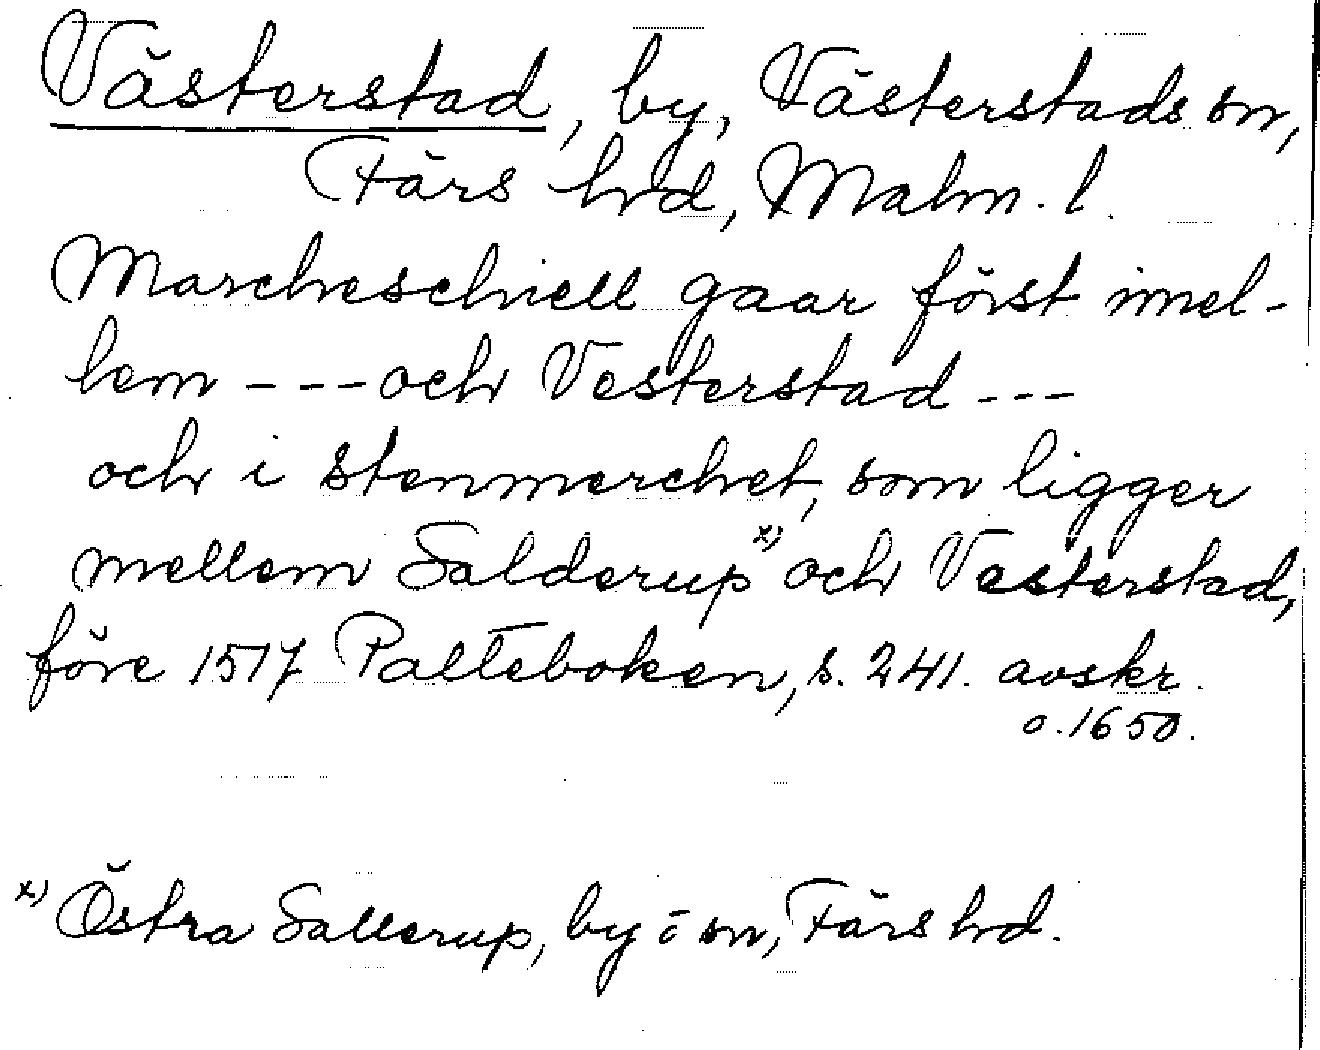 Västerstad, by, Västerstads sn,
Färs hrd, Malm. l.
Marcheschiell gaar först imel-
lem --- och Vesterstad ---
och i stenmerchet, som ligger
mellem Salderup x) och Vesterstad,
före 1517 Palteboken, s. 241. avskr.
o. 1650.
x) Östra Sallerup, by o sn, Färs hrd.